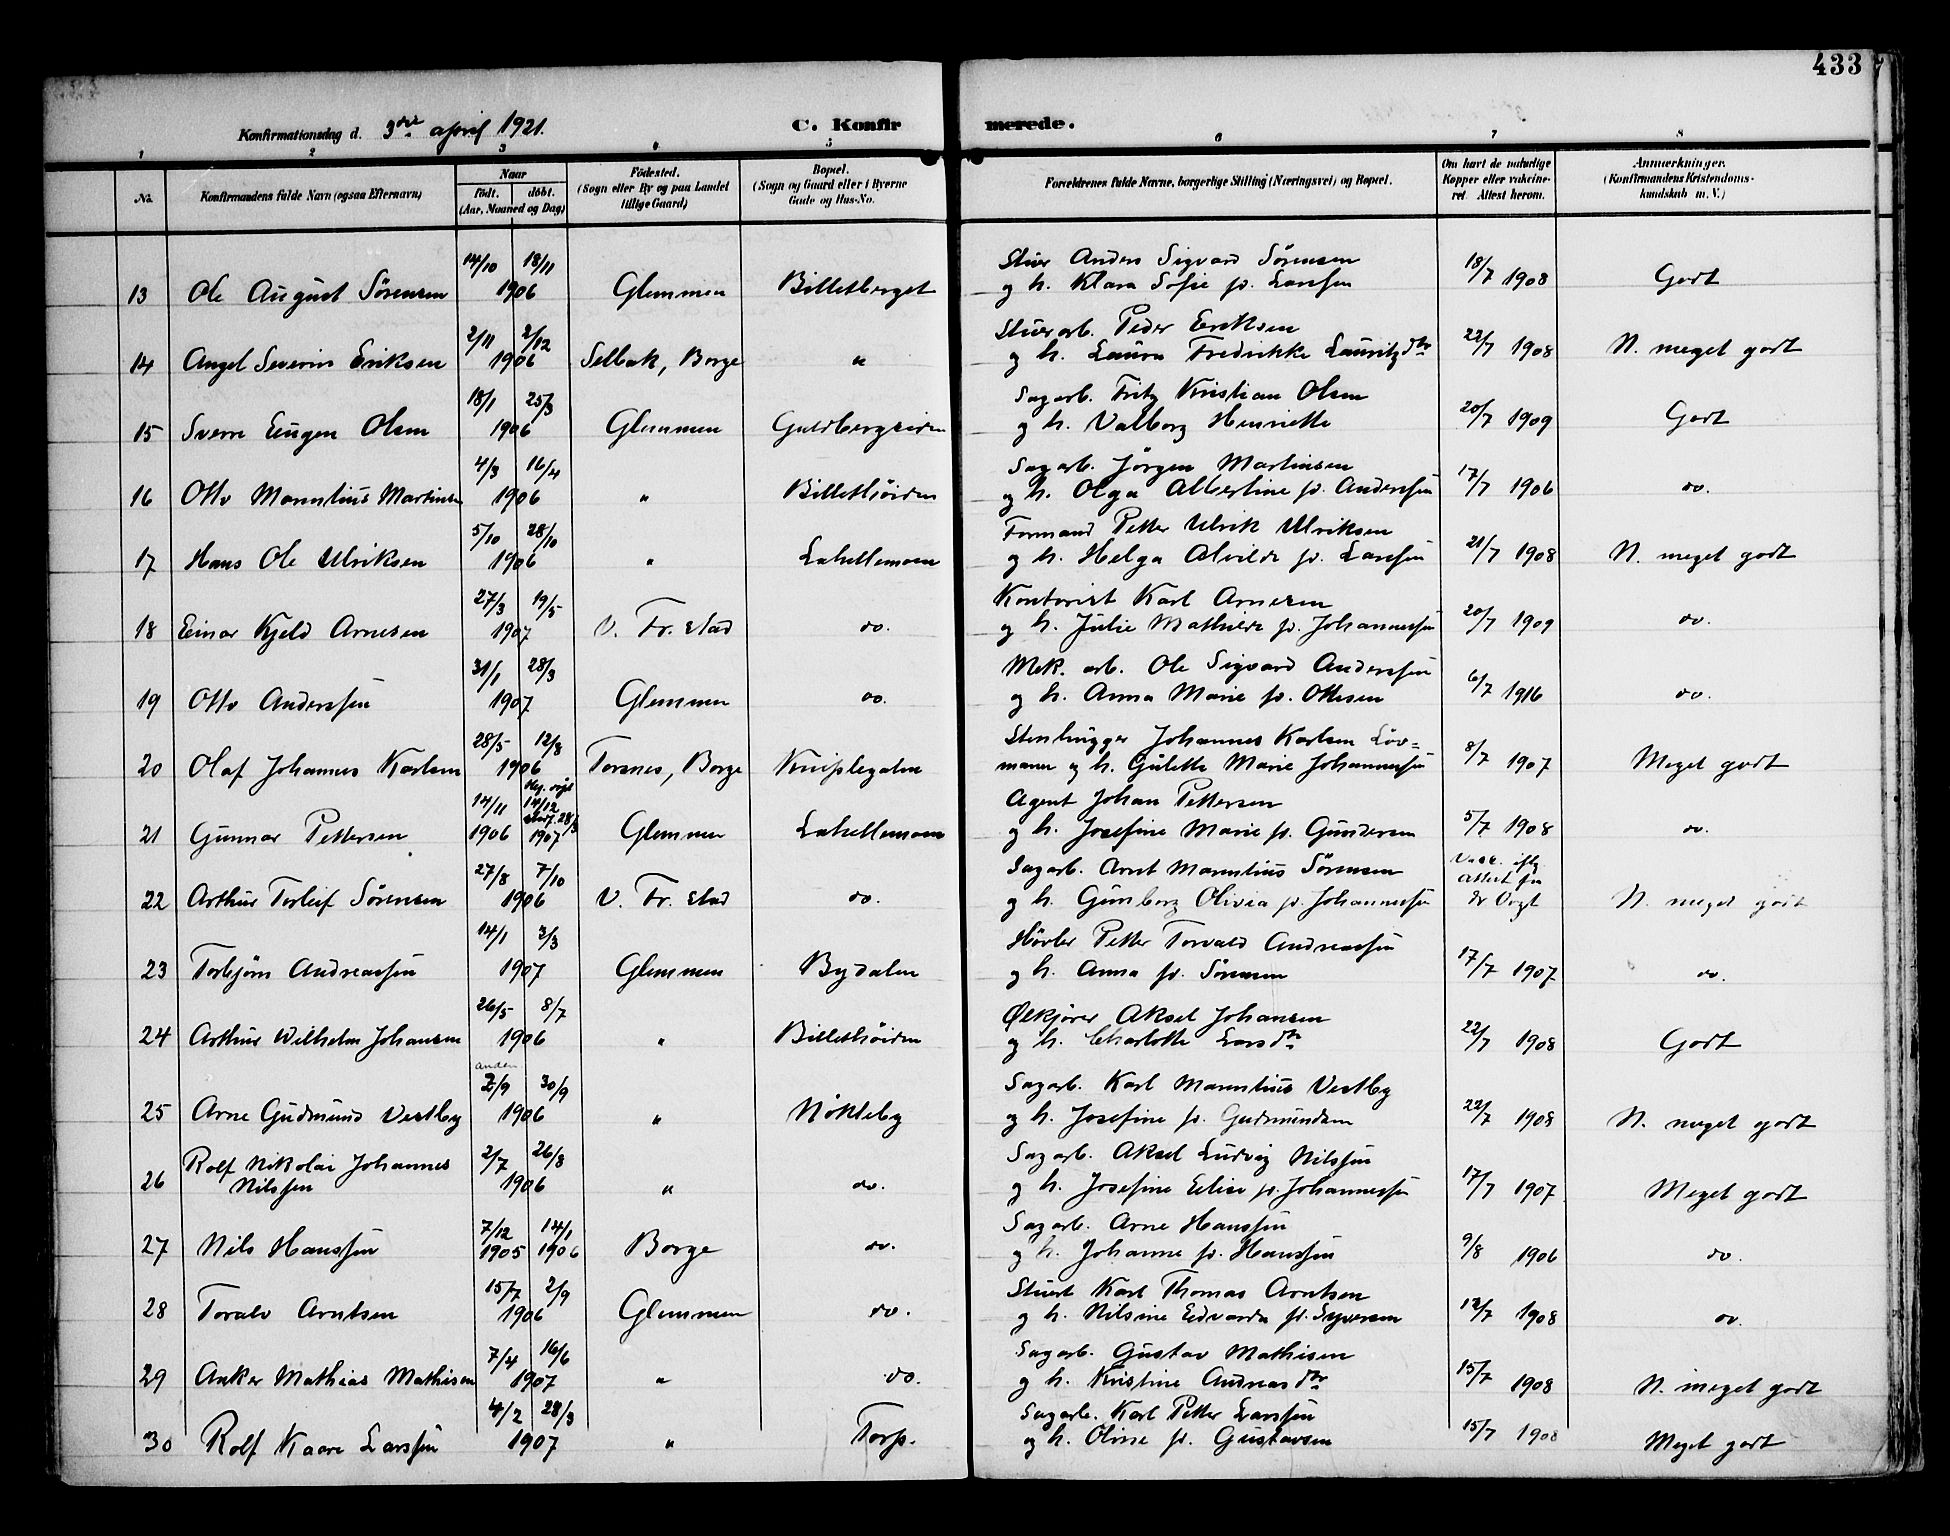 433
Konfirmationsdag d. 3die april 1921.
C. Konfirmerede.
1 2 3 4 5 6 7 8
No. Konfirmandens fulde Navn (ogsaa Efternavn) Naar født. døbt. (Aar, Maaned og Dag) Fødested. (Sogn eller By og paa Landet tillige Gaard) Bopæl. (Sogn og Gaard eller i Byerne Gade og Hus-No. Forældrenes fulde Navne, borgerlige Stilling (Næringsvei) og Bopæl. Om havt de naturlige Kopper eller vakcineret. Attest herom. Anmærkninger. (Konfirmandens Kristendomskundskab m. V.)
14/10 18/11 Anders Sigvard Sörensen 18/7
13 Ole August Sörensen 1906 Glemmen Billetberget og h. Klara Sofie f. Larssen 1908 Godt
2/11 2/12 Peder Eriksen 22/7
14 Angel Severin Eriksen 1906 Selbak, Borge " og h. Laura Fredrikke Lauritzdtr 1908 N. meget godt
18/1 25/3 Sagarb. Fritz Kristian Olsen 20/7
15 Sverre Eugen Olsen 1906 Glemmen Guldbergsiden og h. Valborg Henriette 1909 Godt
4/3 16/4 Sagarb. Jörgen Martinsen 17/7
16 Otto Marentius Martinsen 1906 " Billethöiden og h. Olga Albertine f. Anderssen 1906 do.
5/10 28/10 Formand Petter Ulrik Ulriksen 21/7
17 Hans Ole Ulriksen 1906 " Lahellemoen og h. Helga Alvilde f. Larssen 1908 N. meget godt
27/3 19/5 Kontorist Karl Arnesen 20/7
18 Einar Kjeld Arnesen 1907 V. Fr.stad do. og h. Julie Mathilde f. Johannessen 1909 do.
31/1 28/3 Mek. arb. Ole Sigvard Anderssen 6/7
19 Otto Anderssen 1907 Glemmen do. og h. Anna Marie f. Ottesen 1916 do.
28/5 12/8 Stenhugger Johannes Karlsen Löv- 8/7
20 Olaf Johannes Karlsen 1906 Torsnes, Borge Kniplegaten og h. Gulette Marie Johannessen 1907 Meget godt
14/11 14/12 28/3 Agent Johan Pettersen 5/7
21 Gunnar Pettersen 1906 1907 Glemmen Lahellemoen og h. Josefine Marie f. Gundersen 1908 do.
27/8 7/10 Sagarb. Arnt Marentius Sörensen Attest fra
22 Arthur Torleif Sörensen 1906 V. Fr.stad do. og h. Gunborg Olivia f. Johannessen Dr Vogt N. meget godt
14/1 3/3 Hövler Petter Torvald Andreassen 17/7
23 Torbjörn Andreassen 1907 Glemmen Bydalen og h. Anna f. Sörensen 1907 do.
26/5 8/7 Ølkjörer Aksel Johansen 22/7
24 Arthur Wilhelm Johansen 1906 " Billethöiden og h. Charlotte Larsdtr 1908 Godt
anden
2/9 30/9 Sagarb. Karl Marentius Vestby 22/7
25 Arne Gudmund Vestby 1906 " Nökleby og h. Josefine f. Gudmundsen 1908 N. meget godt
Rolf Nikolai Johannes 2/7 26/8 Sagarb. Aksel Ludvig Nilssen 17/7
26 Nilssen 1906 " do. og h. Josefine Elise f. Johannessen 1907 Meget godt
7/12 14/1 Sagarb. Arne Hanssen 9/8
27 Nils Hanssen 1905 1906 Borge do. og h. Johanne f. Hanssen 1906 do.
15/7 2/9 Karl Thomas Arntsen 12/7
28 Toralv Arntsen 1906 Glemmen do. og h. Nilsine Edvarda f. Syversen 1908 do.
7/4 16/6 Sagarb. Gustav Mathisen 15/7
29 Anker Mathias Mathisen 1907 " do. og h. Kristine Andreasdtr 1908 N. meget godt
4/2 28/3 Sagarb. Karl Petter Larssen 15/7
30 Rolf Kaare Larssen 1907 " Torp. og h. Oline f. Gustavsen 1908 Meget godt